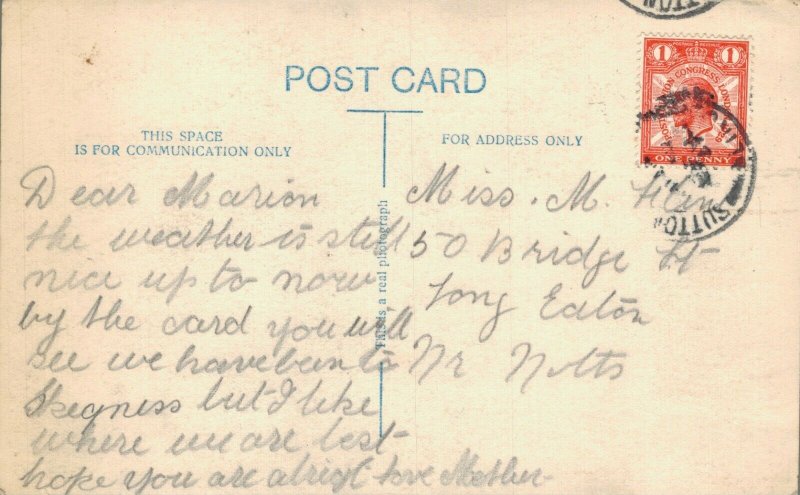 POST CARD
THIS SPACE
IS FOR COMMUNICATION ONLY
FOR ADDRESS ONLY
This is a real photograph
Dear Marion
the weather is still
nice up to now
by the card you will
see we have been to
Skegness but I like
where we are best-
hope you are alrigt love Mother-
Miss. M.
50 Bridge St
Long Eaton
Nr Notts
1 POSTAGE REVENUE 1
POSTAL UNION CONGRESS LONDON
ONE PENNY
SUTTON
SUTTON